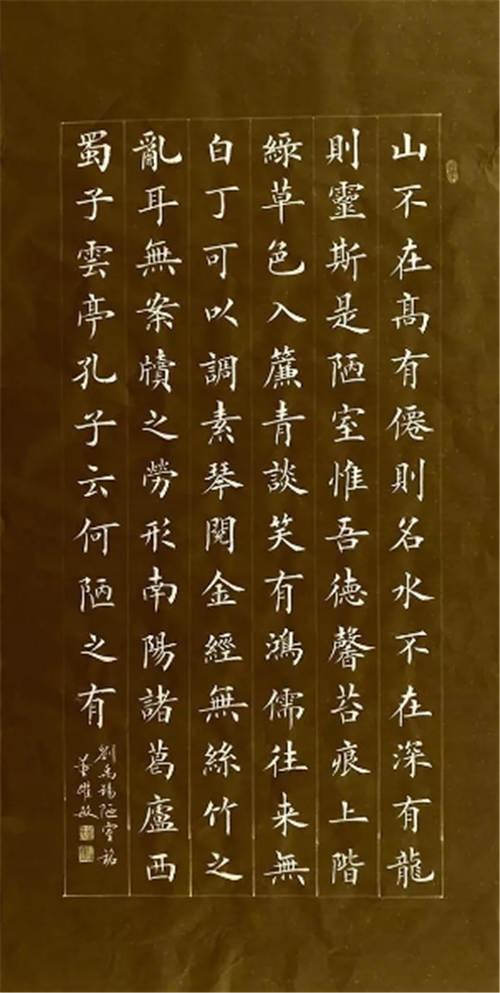 山不在髙有僊則名水不在深有龍
則靈斯是陋室惟吾徳馨苔痕上階
緑草色入簾青談笑有鴻儒往来無
白丁可以調素琴閱金經無絲竹之
亂耳無案牘之勞形南陽諸葛廬西
蜀子雲亭孔子云何陋之有
劉禹錫陋室銘